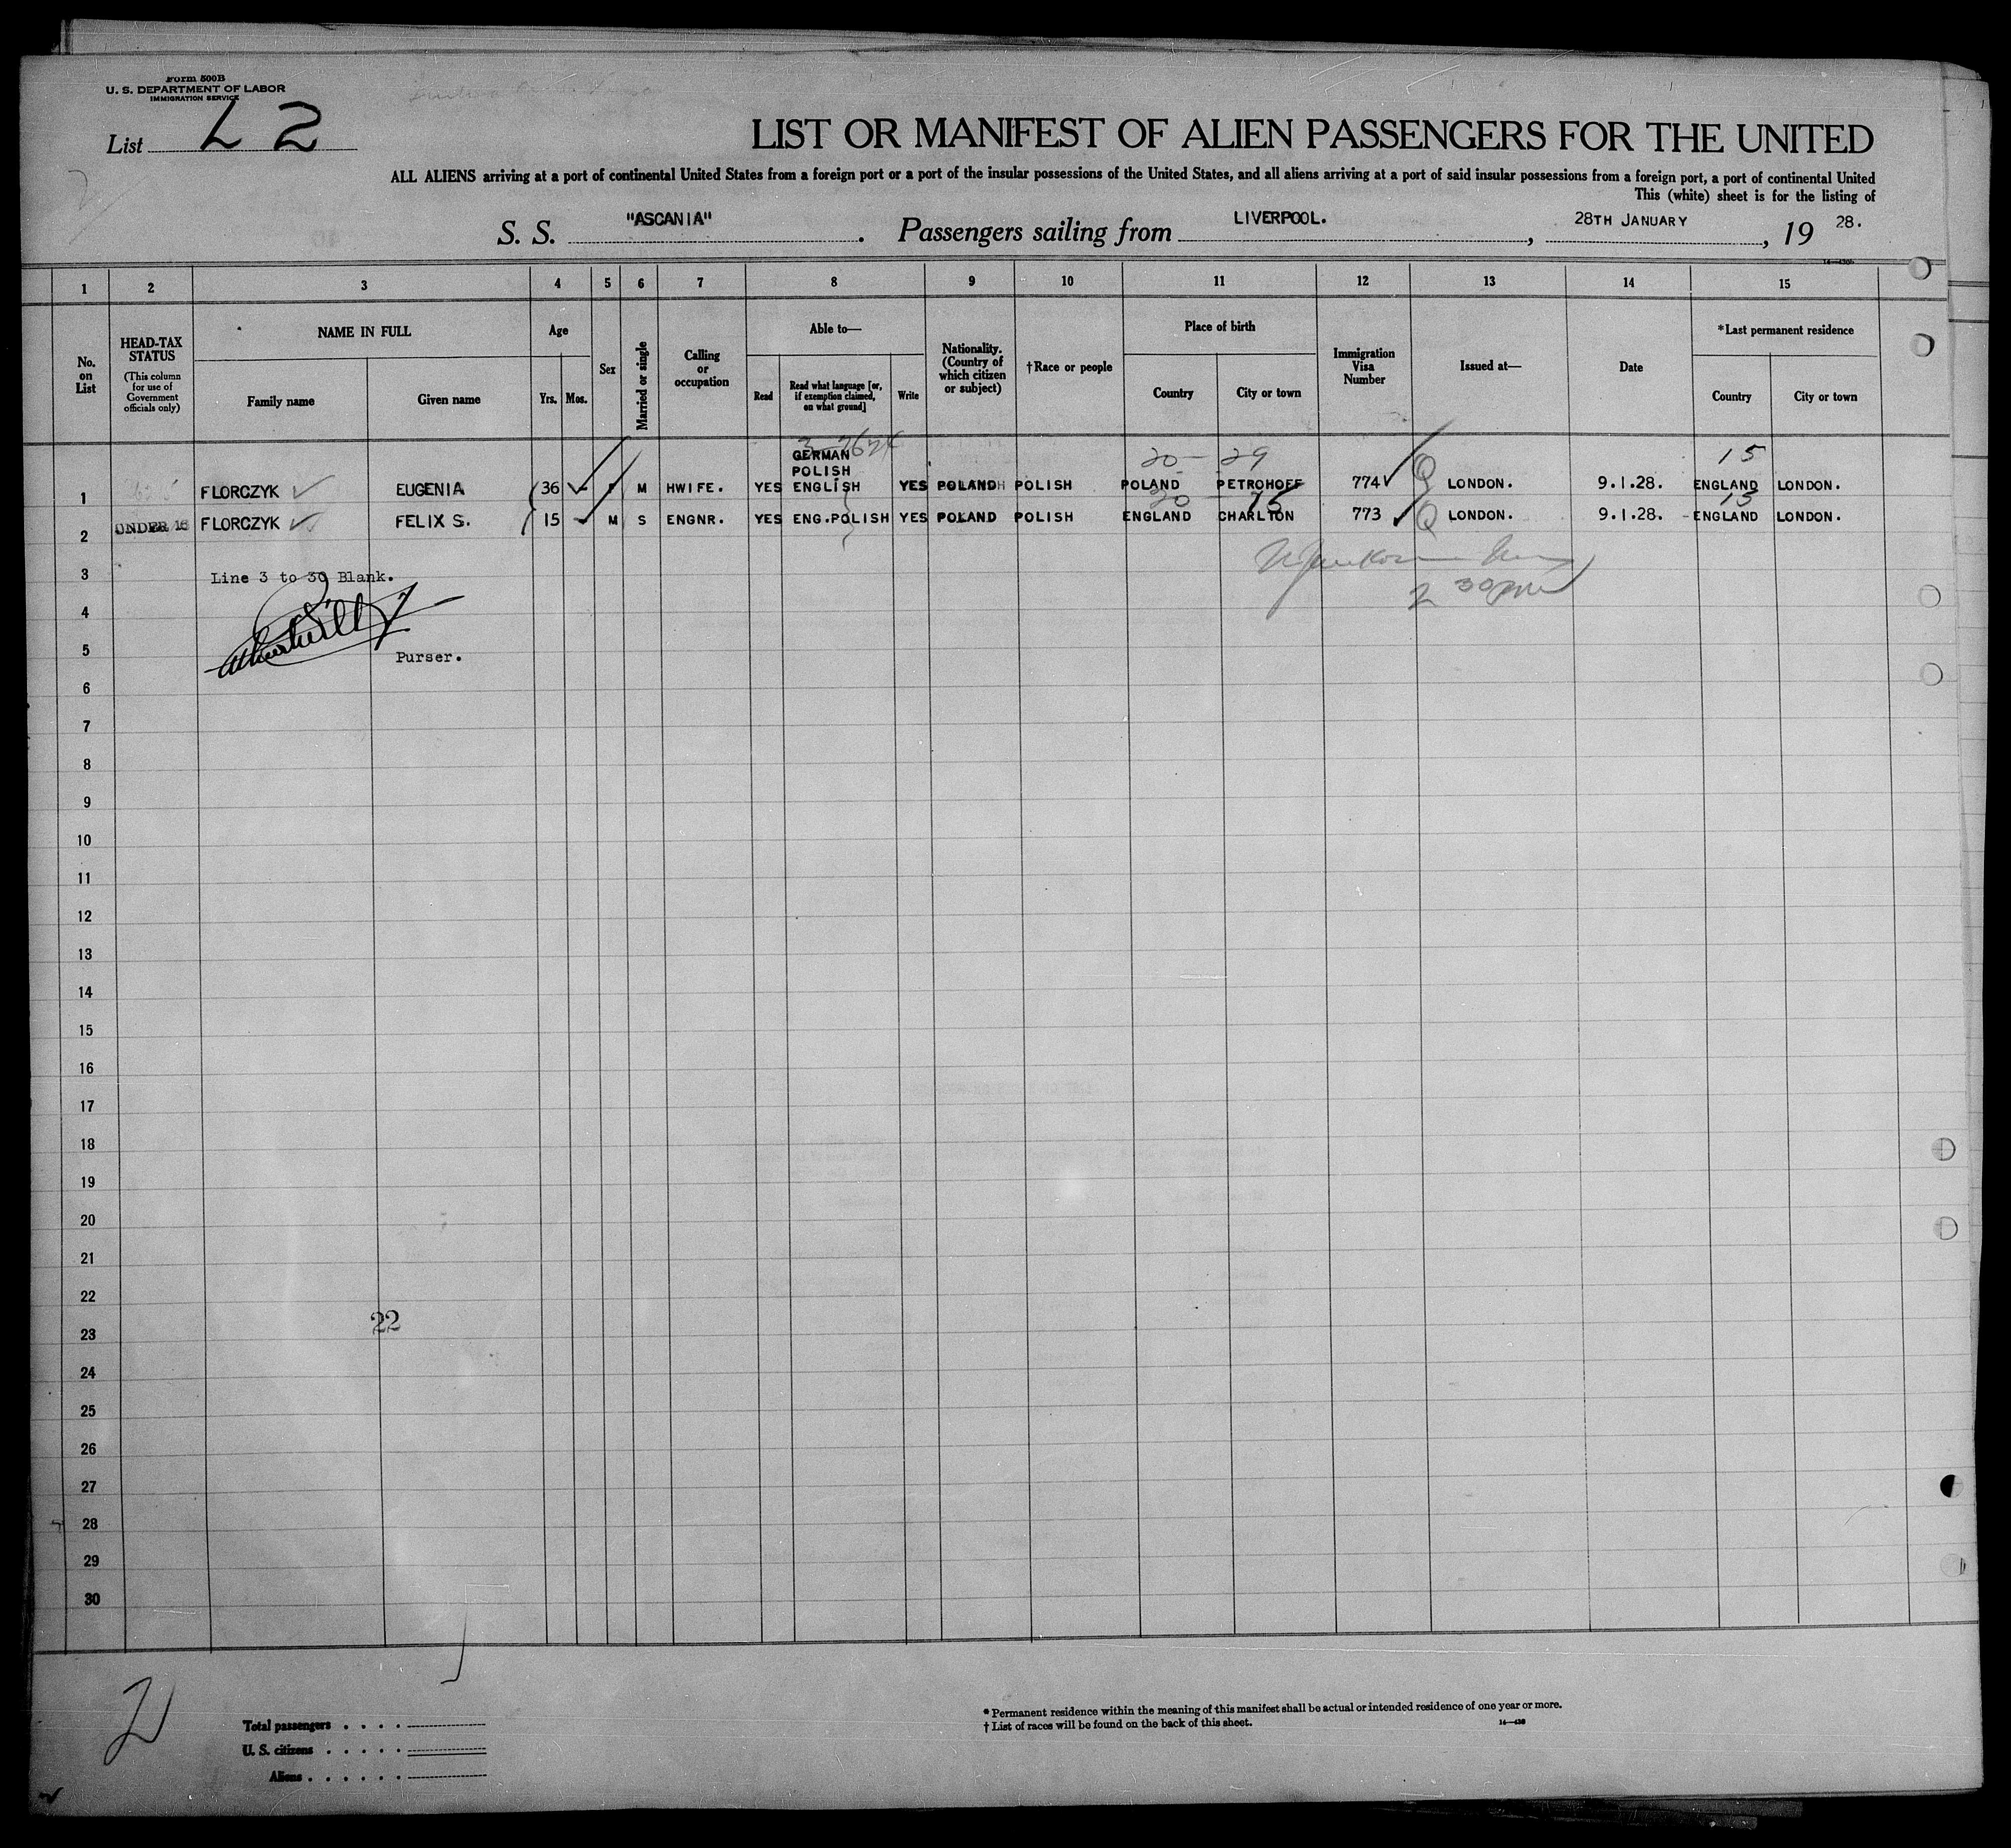 Form 500B
U. S. DEPARTMENT OF LABOR
IMMIGRATION SERVICE
List L 2
LIST OR MANIFEST OF ALIEN PASSENGERS FOR THE UNITED
ALL ALIENS arriving at a port of continental United States from a foreign port or a port of the insular possessions of the United States, and all aliens arriving at a port of said insular possessions from a foreign port, a port of continental United
This (white) sheet is for the listing of
S. S. "ASCANIA". Passengers sailing from LIVERPOOL., 28TH JANUARY, 19 28.
1 2 3 4 5 6 7 8 9 10 11 12 13 14 15
No. on List
HEAD-TAX STATUS
(This column for use of Government officials only)
NAME IN FULL
Family name Given name
Age
Yrs. Mos.
Sex
Married or single
Calling or occupation
Able to—
Read
Read what language [or, if exemption claimed, on what ground]
Write
Nationality. (Country of which citizen or subject)
†Race or people
Place of birth
Country City or town
Immigration Visa Number
Issued at—
Date
*Last permanent residence
Country City or town
20 - 29 15
GERMAN
POLISH
1 FLORCZYK EUGENIA 36 - F M HWIFE. YES ENGLISH YES POLAND POLISH POLAND PETROHOFF 774 Q LONDON. 9.1.28. ENGLAND LONDON.
20 - 75 15
2 UNDER 16 FLORCZYK FELIX S. 15 - M S ENGNR. YES ENG.POLISH YES POLAND POLISH ENGLAND CHARLTON 773 Q LONDON. 9.1.28. - ENGLAND LONDON.
3 Line 3 to 30 Blank.
2 30 pm
4
5 Purser.
6
7
8
9
10
11
12
13
14
15
16
17
18
19
20
21
22
22
23
24
25
26
27
28
29
30
Total passengers . . . .
U. S. citizens . . . . .
Aliens . . . . . .
* Permanent residence within the meaning of this manifest shall be actual or intended residence of one year or more.
† List of races will be found on the back of this sheet.
14—430